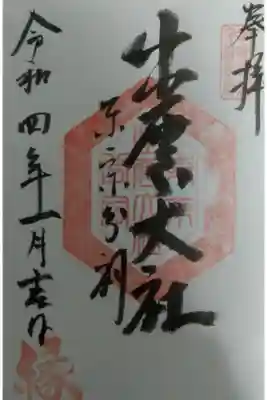 奉拝
出雲大社
東京分祠
令和四年一月吉日
縁